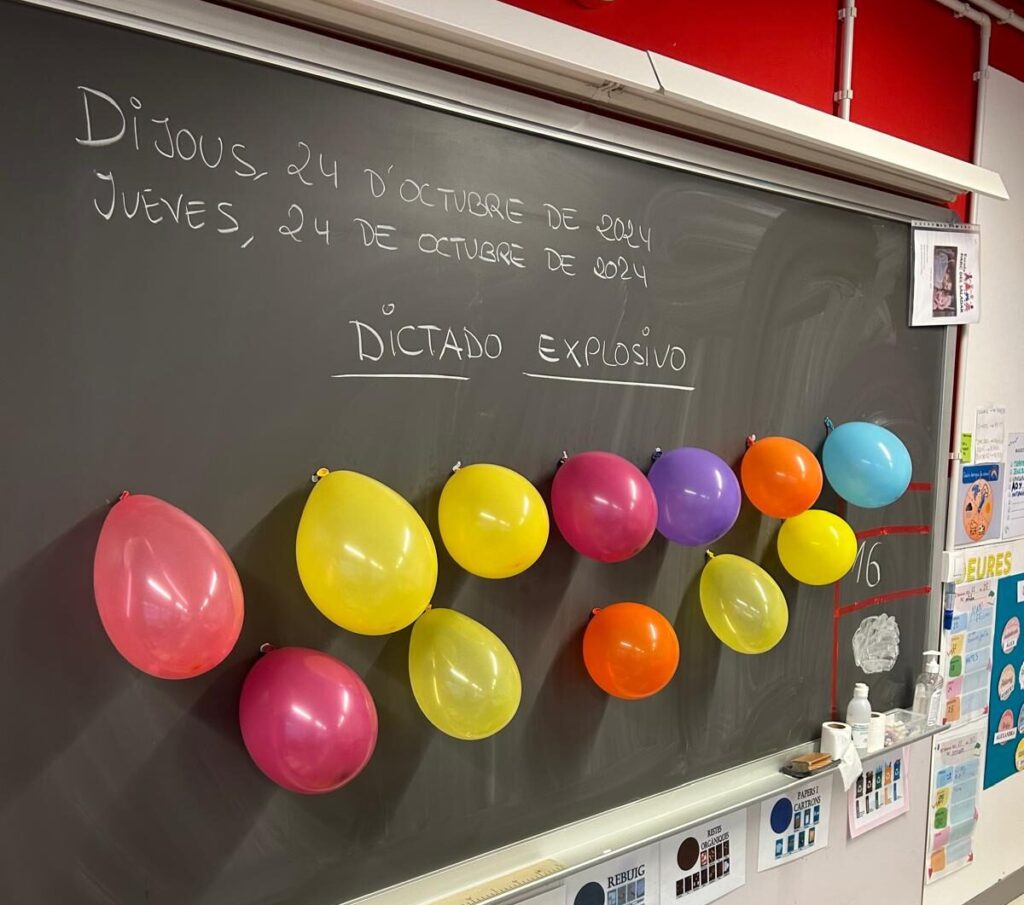 DiJOUS, 24 D'OCTUBRE DE 2024
JUEVES, 24 DE OCTUBRE DE 2024
DiCTADO EXPLOSiVO
16
DEURES
PAPERS I
CARTRONS
RESTES
ORGÀNIQUES
REBUIG